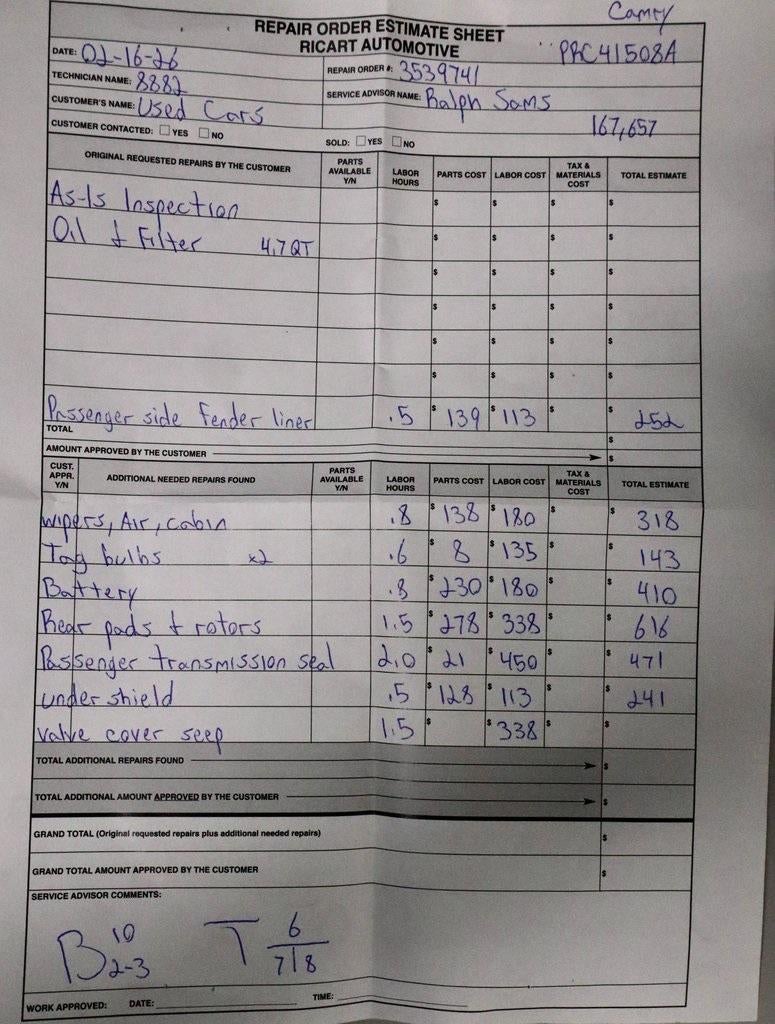 Camry
REPAIR ORDER ESTIMATE SHEET
RICART AUTOMOTIVE
PRC41508A
DATE: 02-16-26
REPAIR ORDER #: 3539741
TECHNICIAN NAME: 8882
SERVICE ADVISOR NAME: Ralph Sams
CUSTOMER'S NAME: Used Cars
167,657
CUSTOMER CONTACTED: YES NO
SOLD: YES NO
ORIGINAL REQUESTED REPAIRS BY THE CUSTOMER PARTS AVAILABLE Y/N LABOR HOURS PARTS COST LABOR COST TAX & MATERIALS COST TOTAL ESTIMATE
As-Is Inspection $ $ $ $
Oil & Filter 4.7 QT $ $ $ $
$ $ $ $
$ $ $ $
$ $ $ $
$ $ $ $
Passenger side fender liner .5 $ 139 $ 113 $ $ 252
TOTAL $
AMOUNT APPROVED BY THE CUSTOMER $
CUST. APPR. Y/N ADDITIONAL NEEDED REPAIRS FOUND PARTS AVAILABLE Y/N LABOR HOURS PARTS COST LABOR COST TAX & MATERIALS COST TOTAL ESTIMATE
wipers, Air, cabin .8 $ 138 $ 180 $ $ 318
Tag bulbs x2 .6 $ 8 $ 135 $ $ 143
Battery .8 $ 230 $ 180 $ $ 410
Rear pads & rotors 1.5 $ 278 $ 338 $ $ 616
Passenger transmission seal 2.0 $ 21 $ 450 $ $ 471
under shield .5 $ 128 $ 113 $ $ 241
valve cover seep 1.5 $ $ 338 $ $
TOTAL ADDITIONAL REPAIRS FOUND $
TOTAL ADDITIONAL AMOUNT APPROVED BY THE CUSTOMER $
GRAND TOTAL (Original requested repairs plus additional needed repairs) $
GRAND TOTAL AMOUNT APPROVED BY THE CUSTOMER $
SERVICE ADVISOR COMMENTS:
B 10 2-3 T 6 7|8
WORK APPROVED: DATE: TIME: